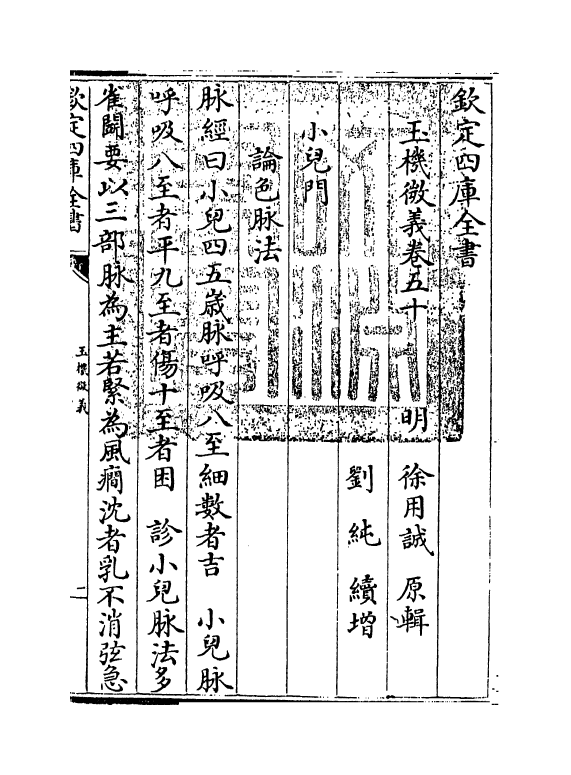 欽定四庫全書
玉機微義卷五十　明　徐用誠　原輯
劉純　續增
小兒門
論色脉法
脉經曰小兒四五嵗脉呼吸八至細數者吉　小兒脉
呼吸八至者平九至者傷十至者困　診小兒脉法多
雀鬭要以三部脉為主若緊為風癎沈者乳不消弦急
欽定四庫全書
玉機微義
二